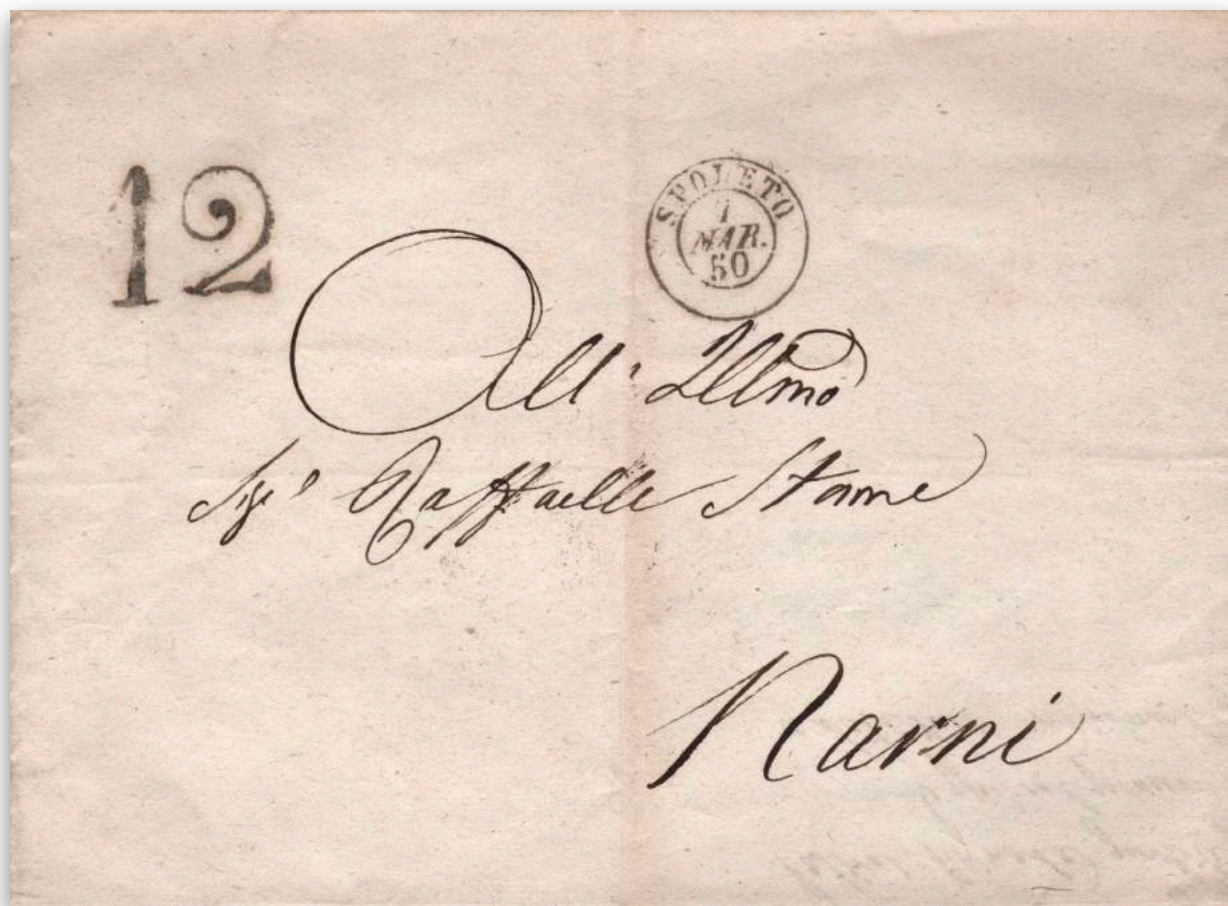 12
SPOLETO
1
MAR.
50
All' Illmo
Sigr Raffaelle Stame
Narni